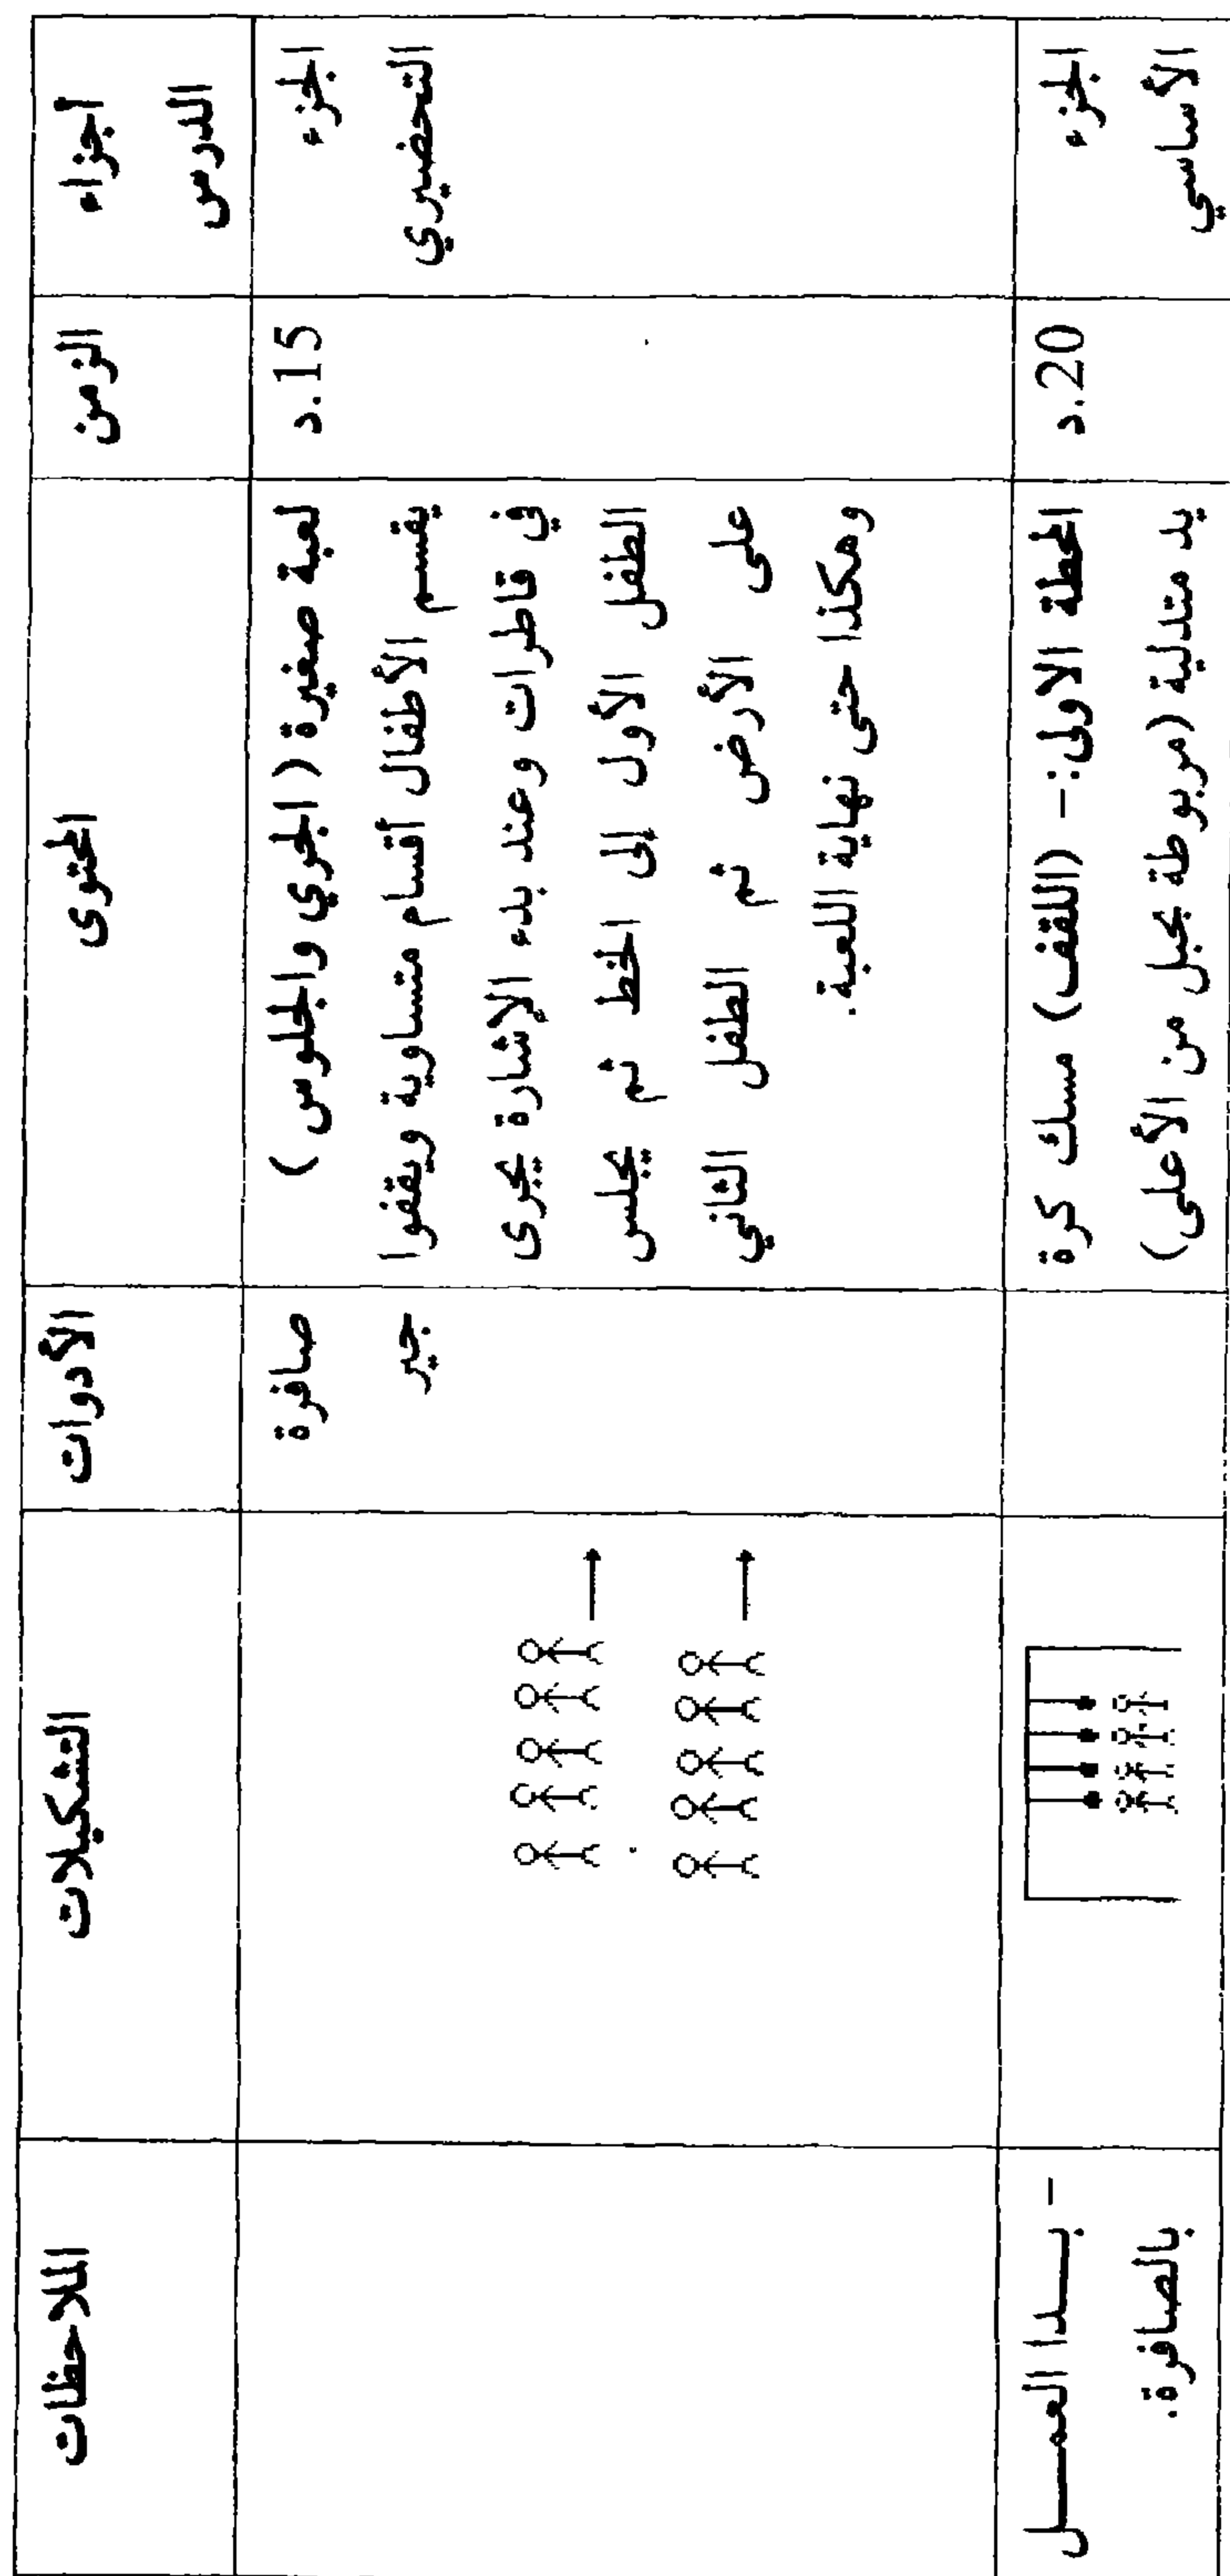 أجزاء
الدرس
الزمن
المحتوى
الأدوات
التشكيلات
الملاحظات
الجزء
التحضيري
15.د
لعبة صغيرة ( الجري والجلوس )
يقسم الأطفال أقسام متساوية ويقفوا
في قاطرات وعند بدء الإشارة يجرى
الطفل الأول إلى الخط ثم يجلس
على الأرض ثم الطفل الثاني
وهكذا حتى نهاية اللعبة.
صافرة
جير
الجزء
الأساسي
20.د
المحطة الاولى:- (اللقف) مسك كرة
يد متدلية (مربوطة بحبل من الأعلى)
- بـدا العمــل
بالصافرة.